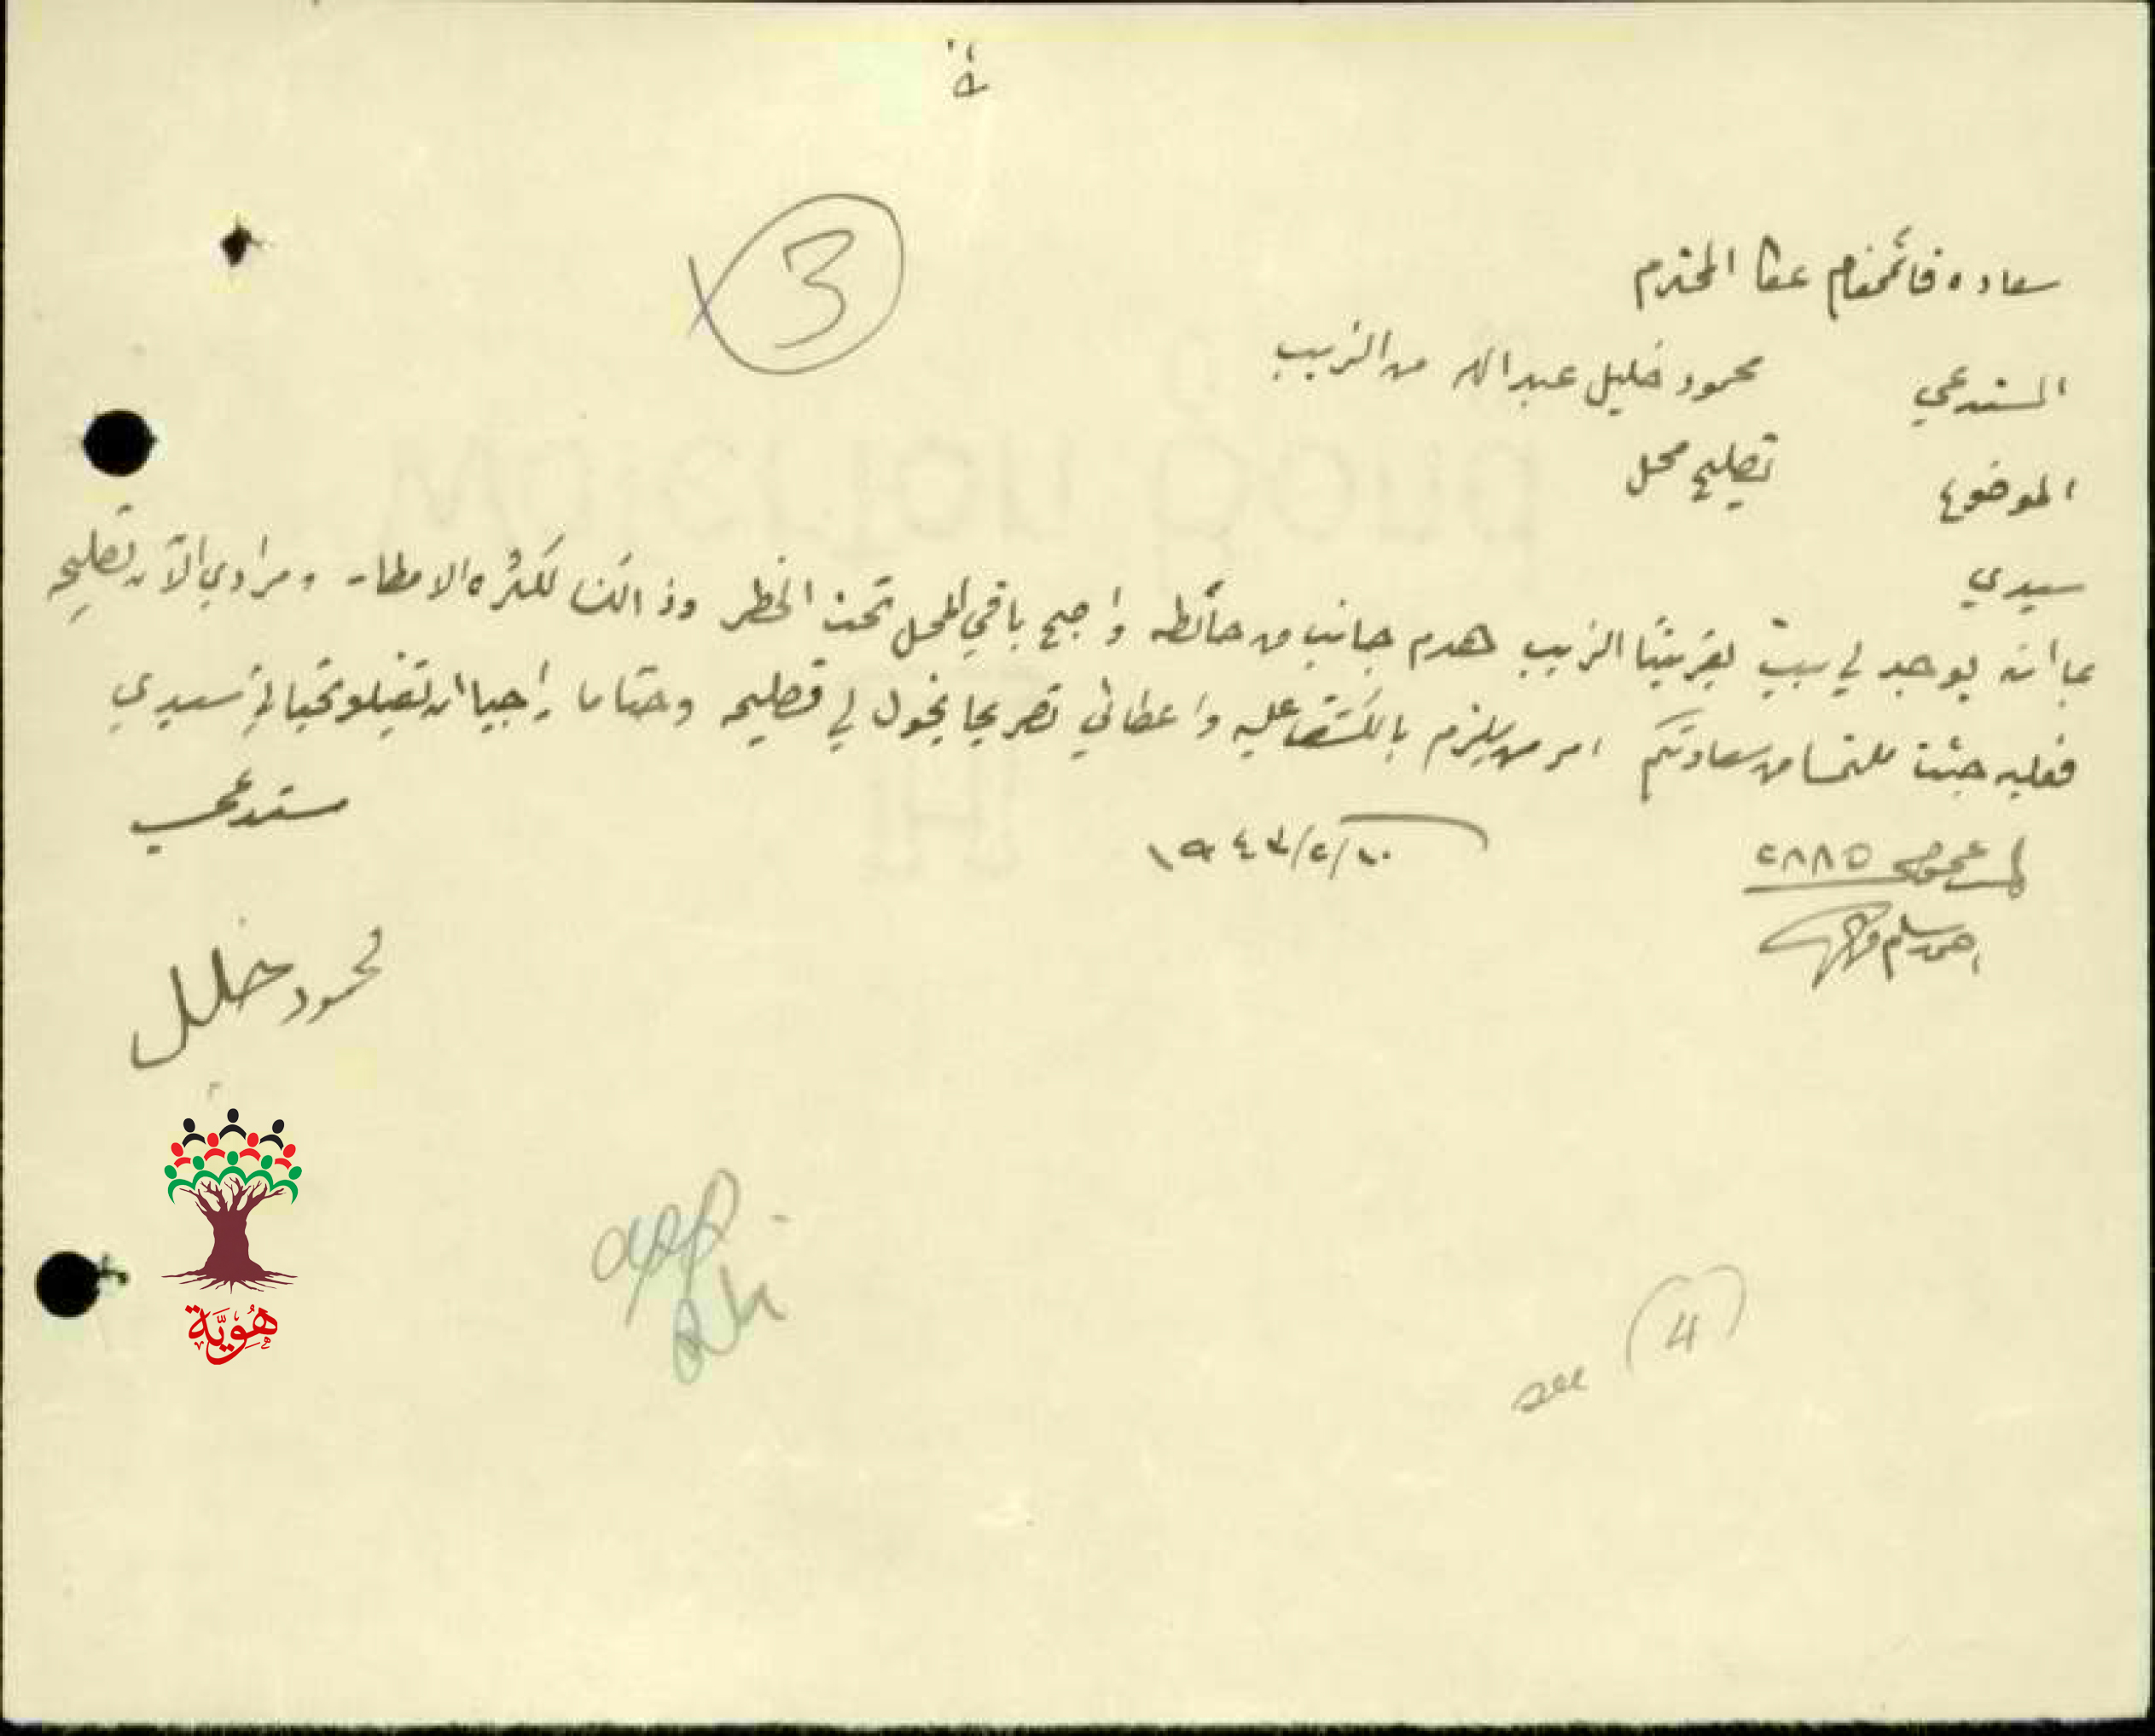 3
سعاده قائمقام عكا المحترم
المستدعي محمود خليل عبدالله من الزيب
الموضوع تصليح محل
سيدي
بما انه يوجد لي بيت بقريتنا الزيب هدم جانب من حائطه واصبح باقي المحل تحت الخطر وذالك لكثره الامطار ومرادي الآن تصليحه
فعليه جئت ملتمسا من سعادتكم امر من يلزم بالكشف عليه واعطائي تصريحا يخول لي تصليحه وختاما راجيا ان تقبلو تحياتي سيدي
مستدعي
١٩٤٣/٢/١٠
٢٨٨٥
احمد سليم
محمود خليل
see (4)
هُوِيَّة